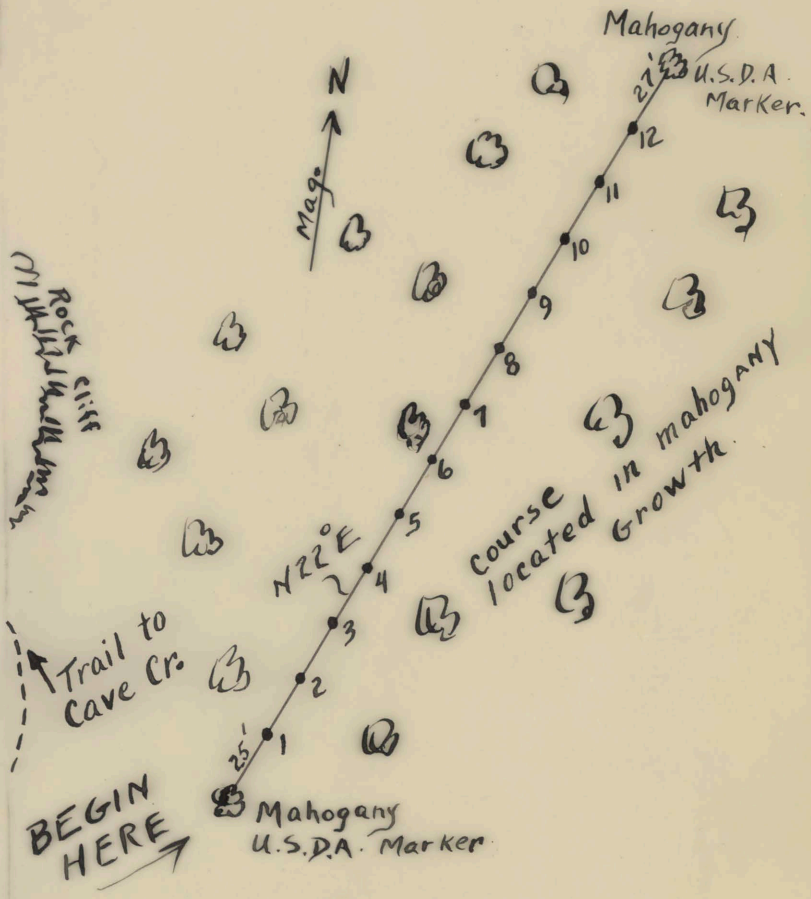 Mahogany
U.S.D.A.
Marker.
27'
N
Mag.
12
11
10
9
8
7
6
5
4
3
2
1
Rock Cliff
N22°E
Course
located in mahogany
Growth.
Trail to
Cave Cr.
25'
BEGIN
HERE
Mahogany
U.S.D.A. Marker